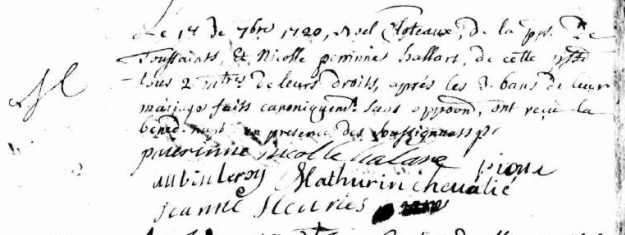 Le 17 de 7bre 1720, Noel Cloteaux, de la pss. de
Toussaints, Et Nicolle perrinne hallart, de cette psse
tous 2 mtres de leurs droits, aprés les 3 bans de leur
mariage faits canoniquemt. sans opposon, ont reçu la
bened. nupt. en presence des soussignants
perrinne nicolle
aubin leroy Mathurin chevalié
Jeanne fleuries